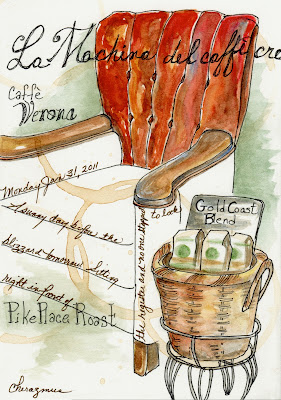 La Machina del caffè cre
Caffè
Verona
Monday Jan 31, 2011
A sunny day before the
blizzard tomorrow. Sitting
right in front of
Pike Place Roast
the register and no one stopped
to look!
Gold Coast
Blend
Cherazmus